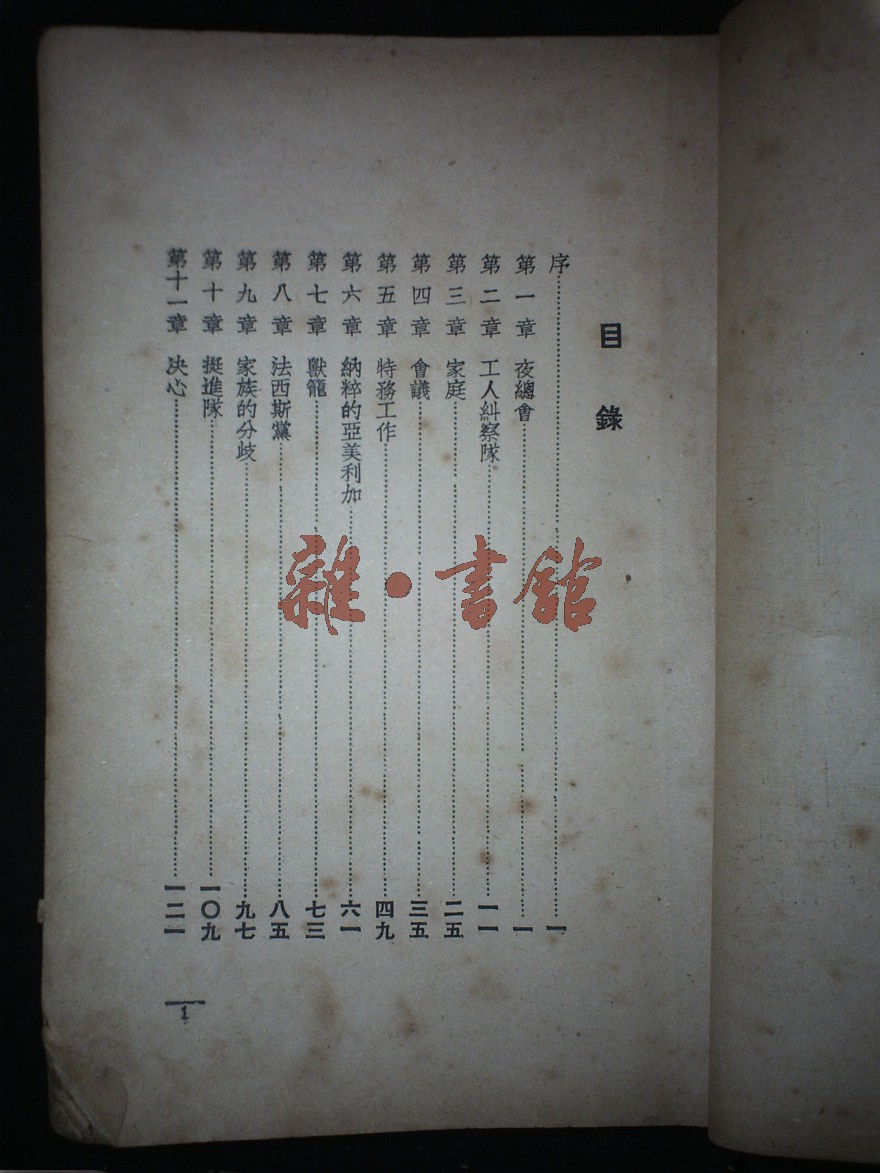 目錄
序……一
第一章 夜總會……一
第二章 工人糾察隊……一一
第三章 家庭……二五
第四章 會議……三五
第五章 特務工作……四九
第六章 納粹的亞美利加……六一
第七章 獸籠……七三
第八章 法西斯黨……八五
第九章 家族的分歧……九七
第十章 挺進隊……一〇九
第十一章 决心……一二一
1
雜·書館